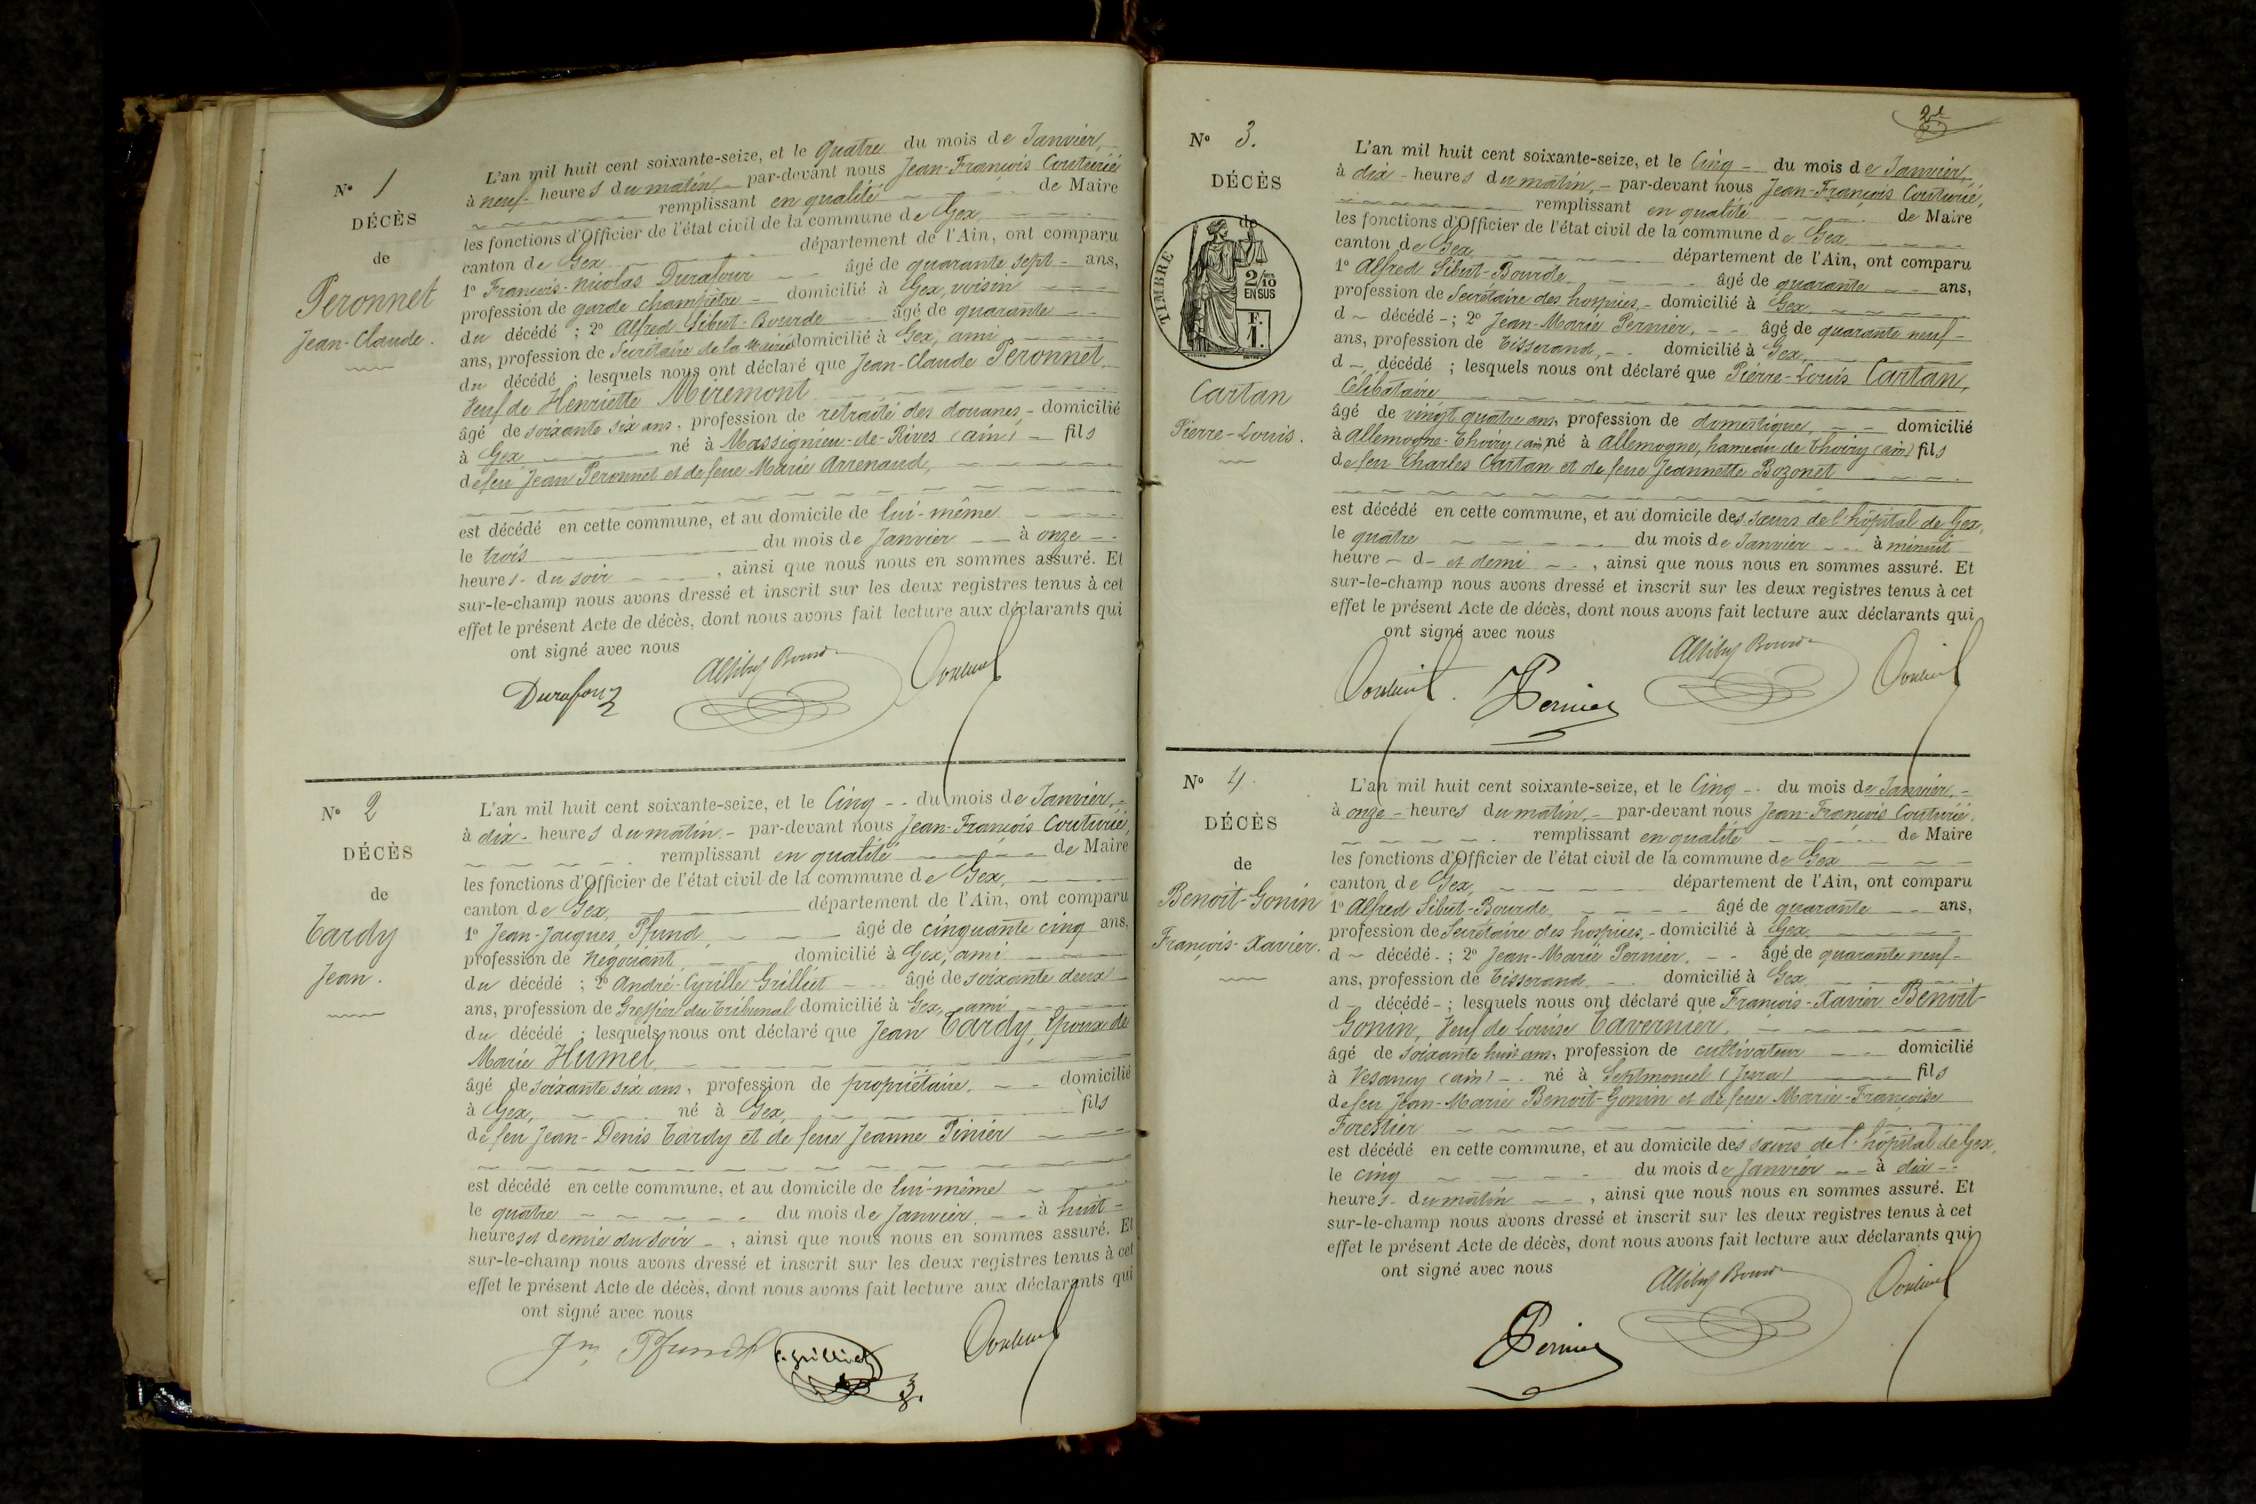 N° 1
DÉCÈS
de
Peronnet
Jean-Claude.
L'an mil huit cent soixante-seize, et le quatre du mois de Janvier,
à neuf heures du matin, par-devant nous Jean-François Couturié
remplissant en qualité de Maire
les fonctions d'Officier de l'état civil de la commune de Gex
canton de Gex département de l'Ain, ont comparu
1° François-Nicolas Durafour âgé de quarante sept ans,
profession de garde champêtre domicilié à Gex, voisin
du décédé ; 2° Alfred Sibut-Bourde âgé de quarante
ans, profession de Secrétaire de la Mairie domicilié à Gex, ami
du décédé ; lesquels nous ont déclaré que Jean-Claude Peronnet
Veuf de Henriette Miremont
âgé de soixante six ans, profession de retraité des douanes domicilié
à Gex né à Massignieu-de-Rives (ain) fils
de feu Jean Peronnet et de feue Marie Arrenaud,
est décédé en cette commune, et au domicile de lui-même
le trois du mois de Janvier à onze
heures du soir, ainsi que nous nous en sommes assuré. Et
sur-le-champ nous avons dressé et inscrit sur les deux registres tenus à cet
effet le présent Acte de décès, dont nous avons fait lecture aux déclarants qui
ont signé avec nous
Durafour
N° 2
DÉCÈS
de
Tardy
Jean.
L'an mil huit cent soixante-seize, et le Cinq du mois de Janvier,
à dix heures du matin par-devant nous Jean-François Couturié,
remplissant en qualité de Maire
les fonctions d'Officier de l'état civil de la commune de Gex,
canton de Gex, département de l'Ain, ont comparu
1° Jean-Jacques Pfund, âgé de cinquante cinq ans,
profession de Négociant domicilié à Gex, ami
du décédé ; 2° André-Cyrille Grilliet âgé de soixante deux
ans, profession de Greffier du Tribunal domicilié à Gex, ami
du décédé ; lesquels nous ont déclaré que Jean Tardy, Epoux de
Marie Humel
âgé de soixante six ans, profession de propriétaire, domicilié
à Gex, né à Gex, fils
de feu Jean-Denis Tardy et de feue Jeanne Pinier
est décédé en cette commune, et au domicile de lui-même
le quatre du mois de Janvier à huit
heures et demie du soir, ainsi que nous nous en sommes assuré. Et
sur-le-champ nous avons dressé et inscrit sur les deux registres tenus à cet
effet le présent Acte de décès, dont nous avons fait lecture aux déclarants qui
ont signé avec nous
Pfund Grilliet
N° 3.
DÉCÈS
de
TIMBRE
2/10
EN SUS
F.
1.
Cartan
Pierre-Louis.
L'an mil huit cent soixante-seize, et le Cinq du mois de Janvier,
à dix heures du matin, par-devant nous Jean-François Couturié,
remplissant en qualité de Maire
les fonctions d'Officier de l'état civil de la commune de Gex
canton de Gex, département de l'Ain, ont comparu
1° Alfred Sibut-Bourde âgé de quarante ans,
profession de Secrétaire des hospices, domicilié à Gex
d décédé ; 2° Jean-Marie Pernier, âgé de quarante neuf
ans, profession de Tisserand, domicilié à Gex,
d décédé ; lesquels nous ont déclaré que Pierre-Louis Cartan,
Célibataire
âgé de vingt quatre ans, profession de domestique, domicilié
à Allemogne-Thoiry (ain) né à Allemogne, hameau de Thoiry (ain) fils
de feu Charles Cartan et de feue Jeannette Bozonet
est décédé en cette commune, et au domicile des sœurs de l'hôpital de Gex,
le quatre du mois de Janvier à minuit
heure d et demi, ainsi que nous nous en sommes assuré. Et
sur-le-champ nous avons dressé et inscrit sur les deux registres tenus à cet
effet le présent Acte de décès, dont nous avons fait lecture aux déclarants qui
ont signé avec nous
Pernier
N° 4.
DÉCÈS
de
Benoit-Gonin
François-Xavier.
L'an mil huit cent soixante-seize, et le Cinq du mois de Janvier,
à onze heures du matin, par-devant nous Jean-François Couturié.
remplissant en qualité de Maire
les fonctions d'Officier de l'état civil de la commune de Gex
canton de Gex, département de l'Ain, ont comparu
1° Alfred Sibut-Bourde, âgé de quarante ans,
profession de Secrétaire des hospices, domicilié à Gex
d décédé ; 2° Jean-Marie Pernier, âgé de quarante neuf
ans, profession de Tisserand domicilié à Gex,
d décédé ; lesquels nous ont déclaré que François-Xavier Benoit
Gonin, Veuf de Louise Tavernier,
âgé de soixante huit ans, profession de cultivateur domicilié
à Vesancy (ain) né à Septmoncel (Jura) fils
de feu Jean-Marie Benoit-Gonin et de feue Marie-Françoise
Forestier
est décédé en cette commune, et au domicile des sœurs de l'hôpital de Gex,
le cinq du mois de Janvier à dix
heures du matin, ainsi que nous nous en sommes assuré. Et
sur-le-champ nous avons dressé et inscrit sur les deux registres tenus à cet
effet le présent Acte de décès, dont nous avons fait lecture aux déclarants qui
ont signé avec nous
Pernier